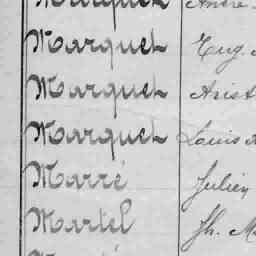 Marquet André
Marquet Eug.
Marquet Arist
Marquet Louis
Marré Julien
Martel Jh. M